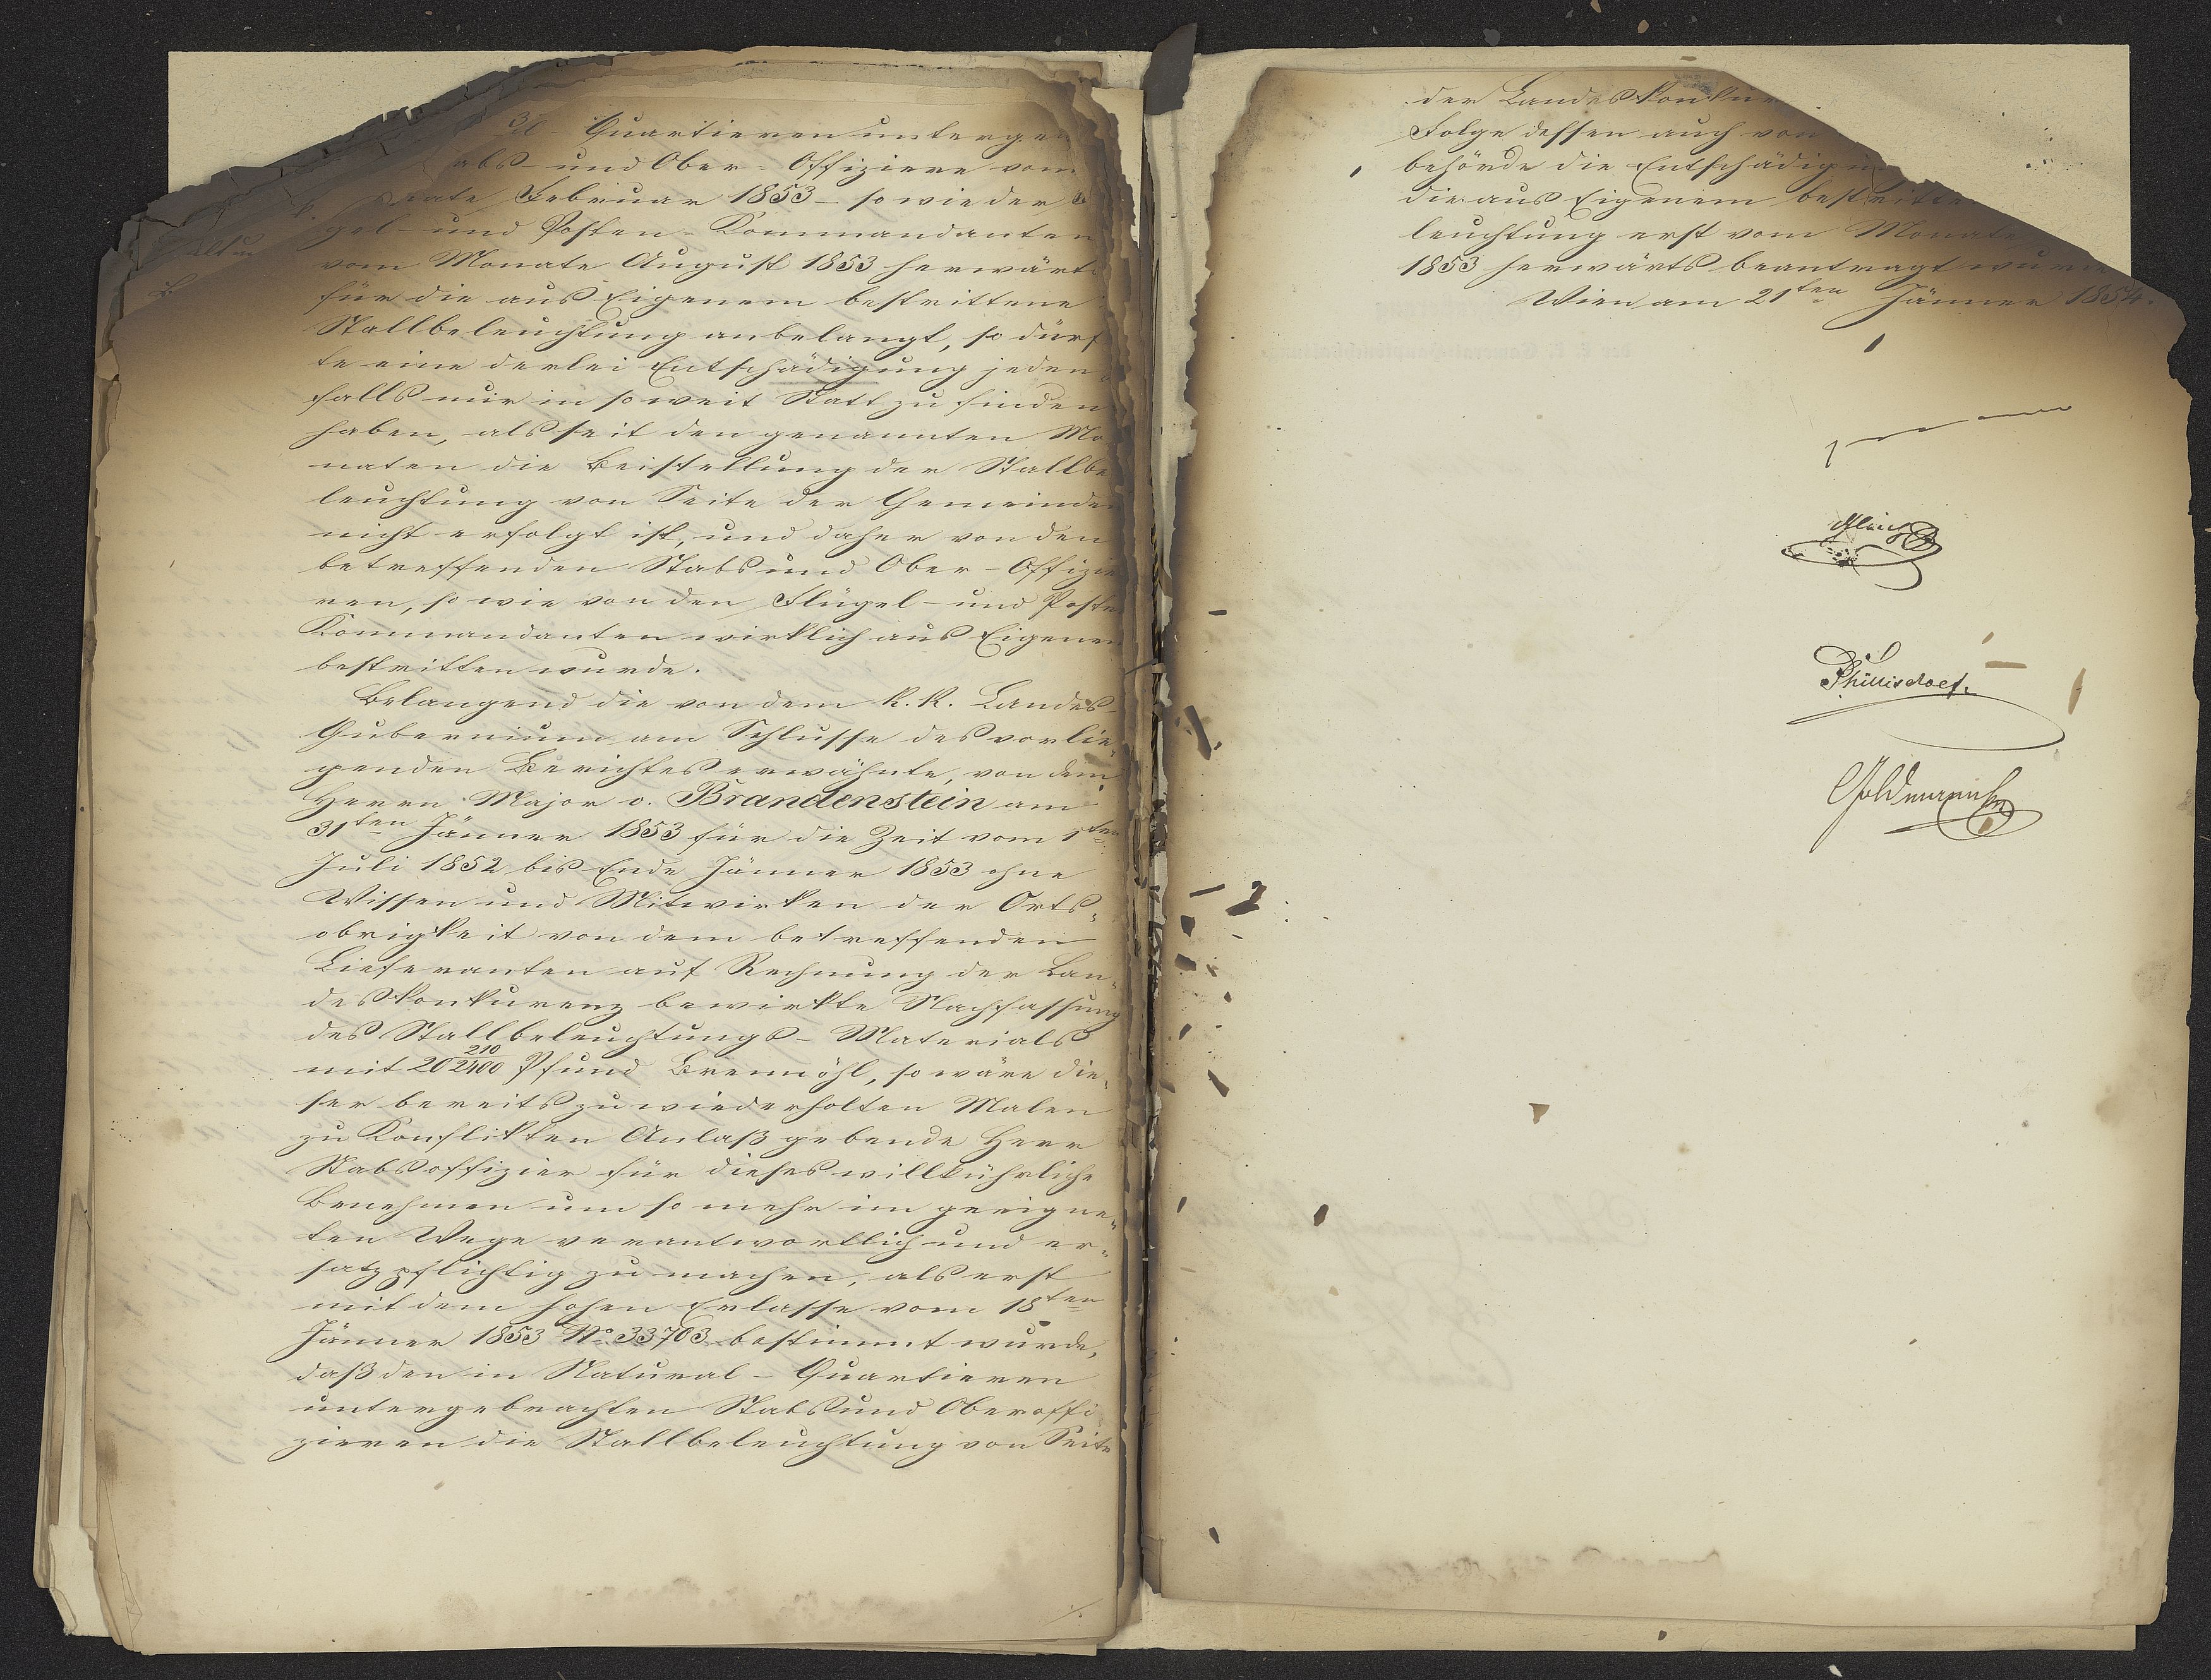 Quartieren unterge
abs- und Ober-Offiziere vom
Februar 1853 – so wie der
gel- und Posten-Kommandanten
vom Monate August 1853 herwärts
für die aus Eigenem bestrittene
Stallbeleuchtung anbelangt, so dürf
te eine derlei Entschädigung jeden
falls nur in so weit Statt zu finden
haben, als seit den genannten Mo
naten die Beistellung der Stallbe
leuchtung von Seite der Gemeinden
nicht erfolgt ist, und daher von den
betreffenden Stabs und Ober-Offizie
ren, so wie von den Flügel- und Posten
Kommandanten wirklich aus Eigenem
bestritten wurde.
Belangend die von dem k. k. Landes-
Gubernium am Schlusse des vorlie-
genden Berichtes erwähnte, von dem
Herrn Major v. Brandenstein am
31ten Jänner 1853 für die Zeit vom 1ten
Juli 1852 bis Ende Jänner 1853 ohne
Wissen und Mitwirken der Orts-
obrigkeit von dem betreffenden
Lieferanten auf Rechnung der Lan-
deskonkurenz bewirkte Nachfassung
des Stallbeleuchtungs-Materials
mit 20 210/2400 Pfund Brennöhl, so wäre die-
ser bereits zu wiederholten Malen
zu Konflikten Anlaß gebende Herr
Stabsoffizier für dieses willkührliche
Benehmen um so mehr im geeigne-
ten Wege verantwortlich und er-
satzpflichtig zu machen, als erst
mit dem hohen Erlasse vom 18ten
Jänner 1853 No 33703 bestimmt wurde,
daß den in Natural-Quartieren
untergebrachten Stabs und Oberoffi-
zieren die Stallbeleuchtung von Seite
der Landeskonkur
Folge dessen auch von
behörde die Entschädigu
die aus Eigenem bestritte
leuchtung erst vom Monate
1853 herwärts beantragt wurde
Wien am 21ten Jänner 1854.